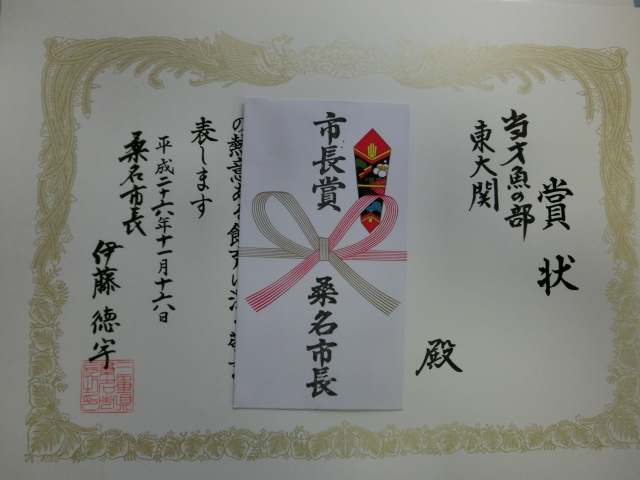 賞状
当才魚の部
東大関
殿
市長賞
桑名市長
表します
平成二十六年十一月十六日
桑名市長
伊藤徳宇